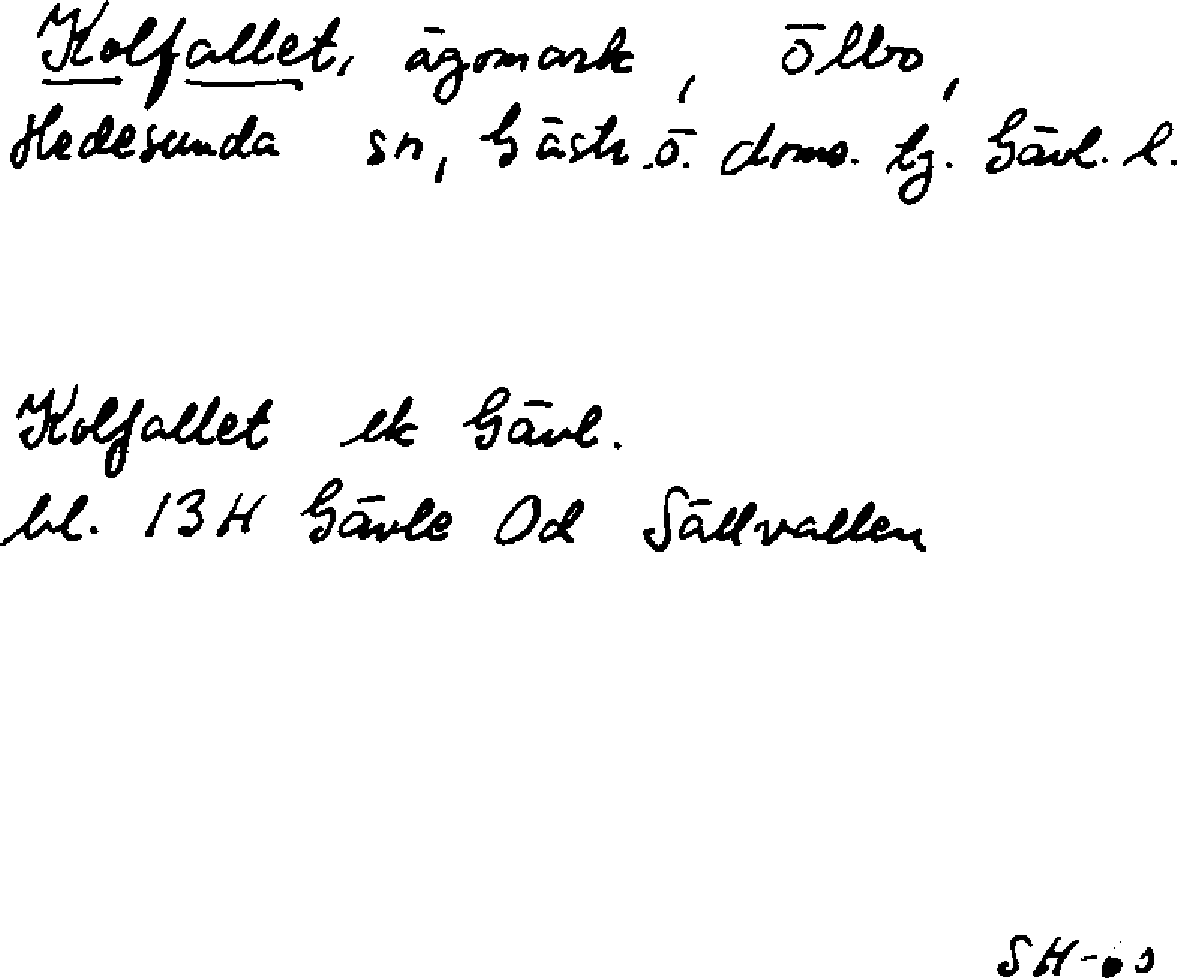 Kolfallet, ägomark, Ölbo,
Hedesunda sn, Gästr. ö. doms. tg. Gävl. l.
Kolfallet ek Gävl.
bl. 13H Gävle 0d Sällvallen